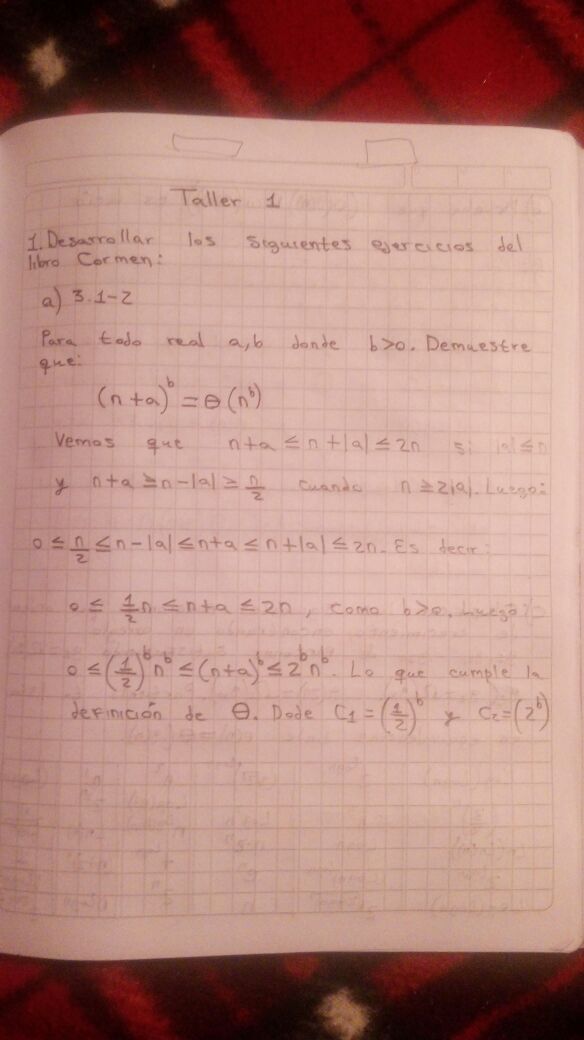 Taller 1
1. Desarrollar los siguientes ejercicios del
libro Cormen:
a) 3.1-2
Para todo real a,b donde b>0. Demuestre
que:
(n+a)^b = Θ(n^b)
Vemos que n+a ≤ n+|a| ≤ 2n si |a| ≤ n
y n+a ≥ n-|a| ≥ n/2 cuando n ≥ 2|a|. Luego:
0 ≤ n/2 ≤ n-|a| ≤ n+a ≤ n+|a| ≤ 2n. Es decir:
0 ≤ 1/2 n ≤ n+a ≤ 2n, como b>0. Luego:
0 ≤ (1/2)^b n^b ≤ (n+a)^b ≤ 2^b n^b. Lo que cumple la
definición de Θ. Dode C1 = (1/2)^b y C2 = (2^b)